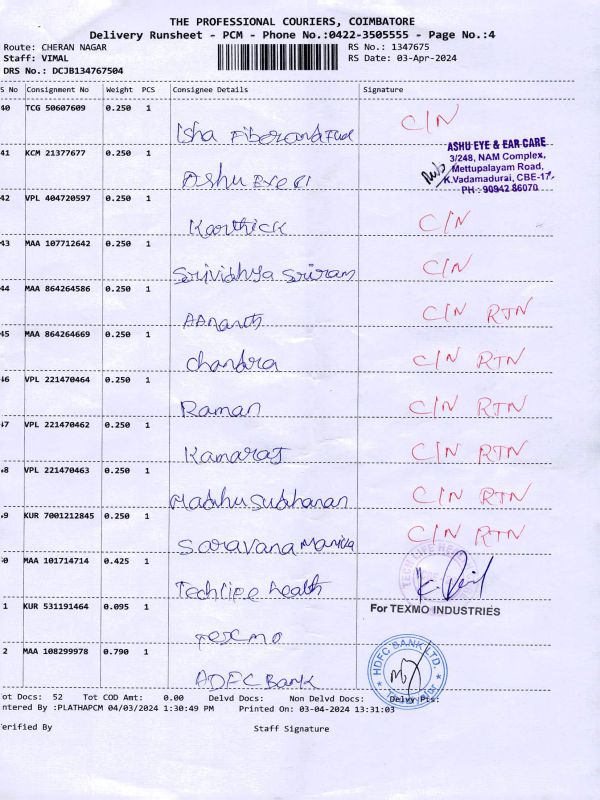 THE PROFESSIONAL COURIERS, COIMBATORE
Delivery Runsheet - PCM - Phone No.:0422-3505555 - Page No.:4
Route: CHERAN NAGAR
RS No.: 1347675
Staff: VIMAL
RS Date: 03-Apr-2024
DRS No.: DCJB134767504
S No Consignment No Weight PCS Consignee Details Signature
40 TCG 50607609 0.250 1
Isha C/N
41 KCM 21377677 0.250 1
ASHU EYE & EAR CARE
3/248, NAM Complex,
Mettupalayam Road,
K.Vadamadurai, CBE-17.
PH : 90942 86070
Ashu
42 VPL 404720597 0.250 1
Karthick C/N
43 MAA 107712642 0.250 1
Srividhya Sriram C/N
44 MAA 864264586 0.250 1
AAnanth C/N RTN
45 MAA 864264669 0.250 1
chandra C/N RTN
46 VPL 221470464 0.250 1
Raman C/N RTN
47 VPL 221470462 0.250 1
Kamaraj C/N RTN
48 VPL 221470463 0.250 1
Madhusudhanan C/N RTN
49 KUR 7001212845 0.250 1
Saravana C/N RTN
0 MAA 101714714 0.425 1
Techlife health
1 KUR 531191464 0.095 1
For TEXMO INDUSTRIES
Texmo
2 MAA 108299978 0.790 1
HDFC BANK LTD.
HDFC Bank
ot Docs: 52 Tot COD Amt: 0.00 Delvd Docs: Non Delvd Docs: Delvy Pts:
ntered By :PLATHAPCM 04/03/2024 1:30:49 PM Printed On: 03-04-2024 13:31:03
erified By Staff Signature